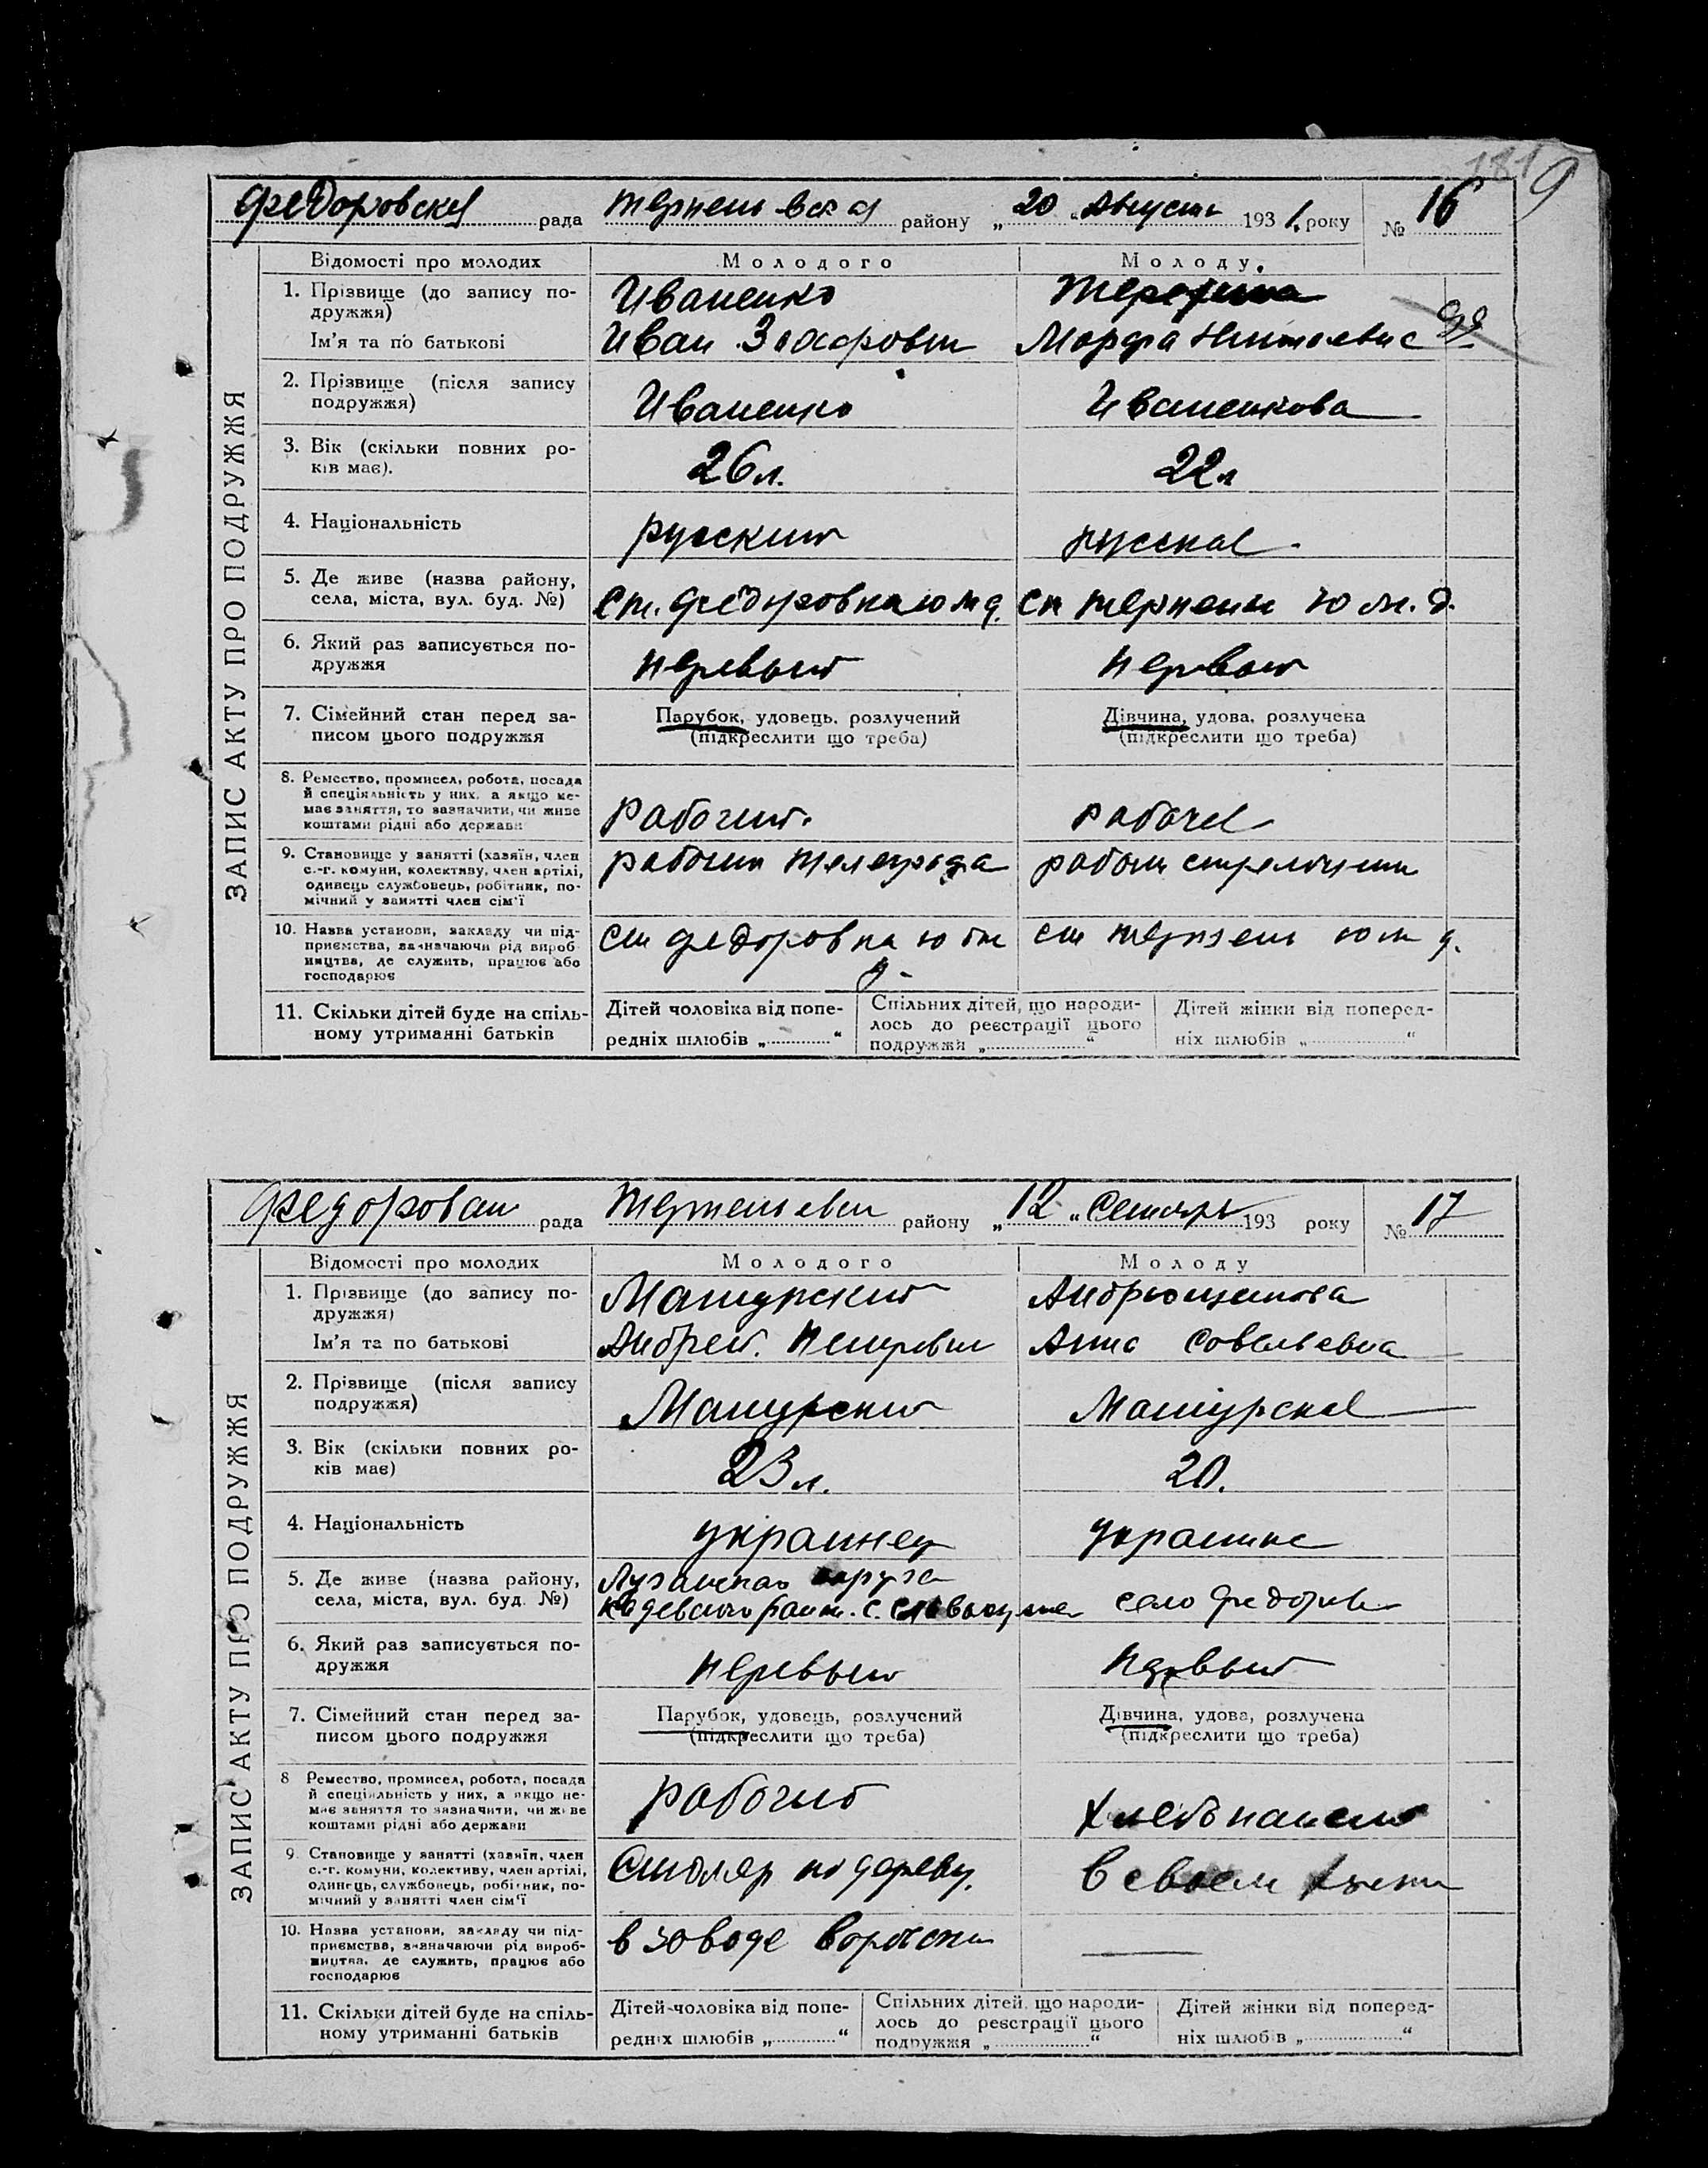 Федоровска рада Терпеньевская району „20“ Августь 1931. року № 16
ЗАПИС АКТУ ПРО ПОДРУЖЖЯ
Відомості про молодих Молодого Молоду
1. Прізвище (до запису по-
дружжя)
Иваненко
Ім'я та по батькові Иван Захарович Марфа
2. Прізвище (після запису
подружжя)
Иваненко Иваненкова
3. Вік (скільки повних ро-
ків має).
26 л. 22 л
4. Національність русский русская
5. Де живе (назва району,
села, міста, вул. буд. №)
ст. Федоровка ю ж д. ст Терпенье ю ж. д.
6. Який раз записується по-
дружжя
первый первый
7. Сімейний стан перед за-
писом цього подружжя
Парубок, удовець, розлучений
(підкреслити що треба)
Дівчина, удова, розлучена
(підкреслити що треба)
8. Ремество, промисел, робота, посада
й спеціяльність у них, а якщо не-
має заняття, то зазначити, чи живе
коштами рідні або держави
Рабочий. рабочая
9. Становище у занятті (хазяїн, член
с.-г. комуни, колективу, член артілі,
одинець службовець, робітник, по-
мічний у занятті член сім'ї
рабочий телеграфа
10. Назва установи, закладу чи під-
приємства, зазначаючи рід вироб-
ництва, де служить, працює або
господарює
ст Федоровка ю ж д. ст Терпень ю ж д.
11. Скільки дітей буде на спіль-
ному утриманні батьків
Дітей чоловіка від попе-
редніх шлюбів „ “
Спільних дітей, що народи-
лось до реєстрації цього
подружжя „ “
Дітей жінки від поперед-
ніх шлюбів „ “
Федоровск рада Терпеньевск району „12“ Сентярь 193 року № 17
ЗАПИС АКТУ ПРО ПОДРУЖЖЯ
Відомості про молодих Молодого Молоду
1. Прізвище (до запису по-
дружжя)
Машурский Андрющенкова
Ім'я та по батькові Андрей. Петрович Анна Савельевна
2. Прізвище (після запису
подружжя)
Машурский Машурская
3. Вік (скільки повних ро-
ків має)
23 л. 20.
4. Національність украинец украинка
5. Де живе (назва району,
села, міста, вул. буд. №)
Луганская округа
район. с. село Федоровка
6. Який раз записується по-
дружжя
первый первый
7. Сімейний стан перед за-
писом цього подружжя
Парубок, удовець, розлучений
(підкреслити що треба)
Дівчина, удова, розлучена
(підкреслити що треба)
8 Ремество, промисел, робота, посада
й спеціяльність у них, а якщо не-
має заняття то зазначити, чи живе
коштами рідні або держави
рабочий
9. Становище у занятті (хазяїн, член
с.-г. комуни, колективу, член артілі,
одинець, службовець, робітник, по-
мічний у занятті член сім'ї
Столяр по дереву. в своем
10. Назва установи, закладу чи під-
приємства, зазначаючи рід вироб-
ництва, де служить, працює або
господарює
в заводе
11. Скільки дітей буде на спіль-
ному утриманні батьків
Дітей чоловіка від попе-
редніх шлюбів „ “
Спільних дітей, що народи-
лось до реєстрації цього
подружжя „ “
Дітей жінки від поперед-
ніх шлюбів „ “